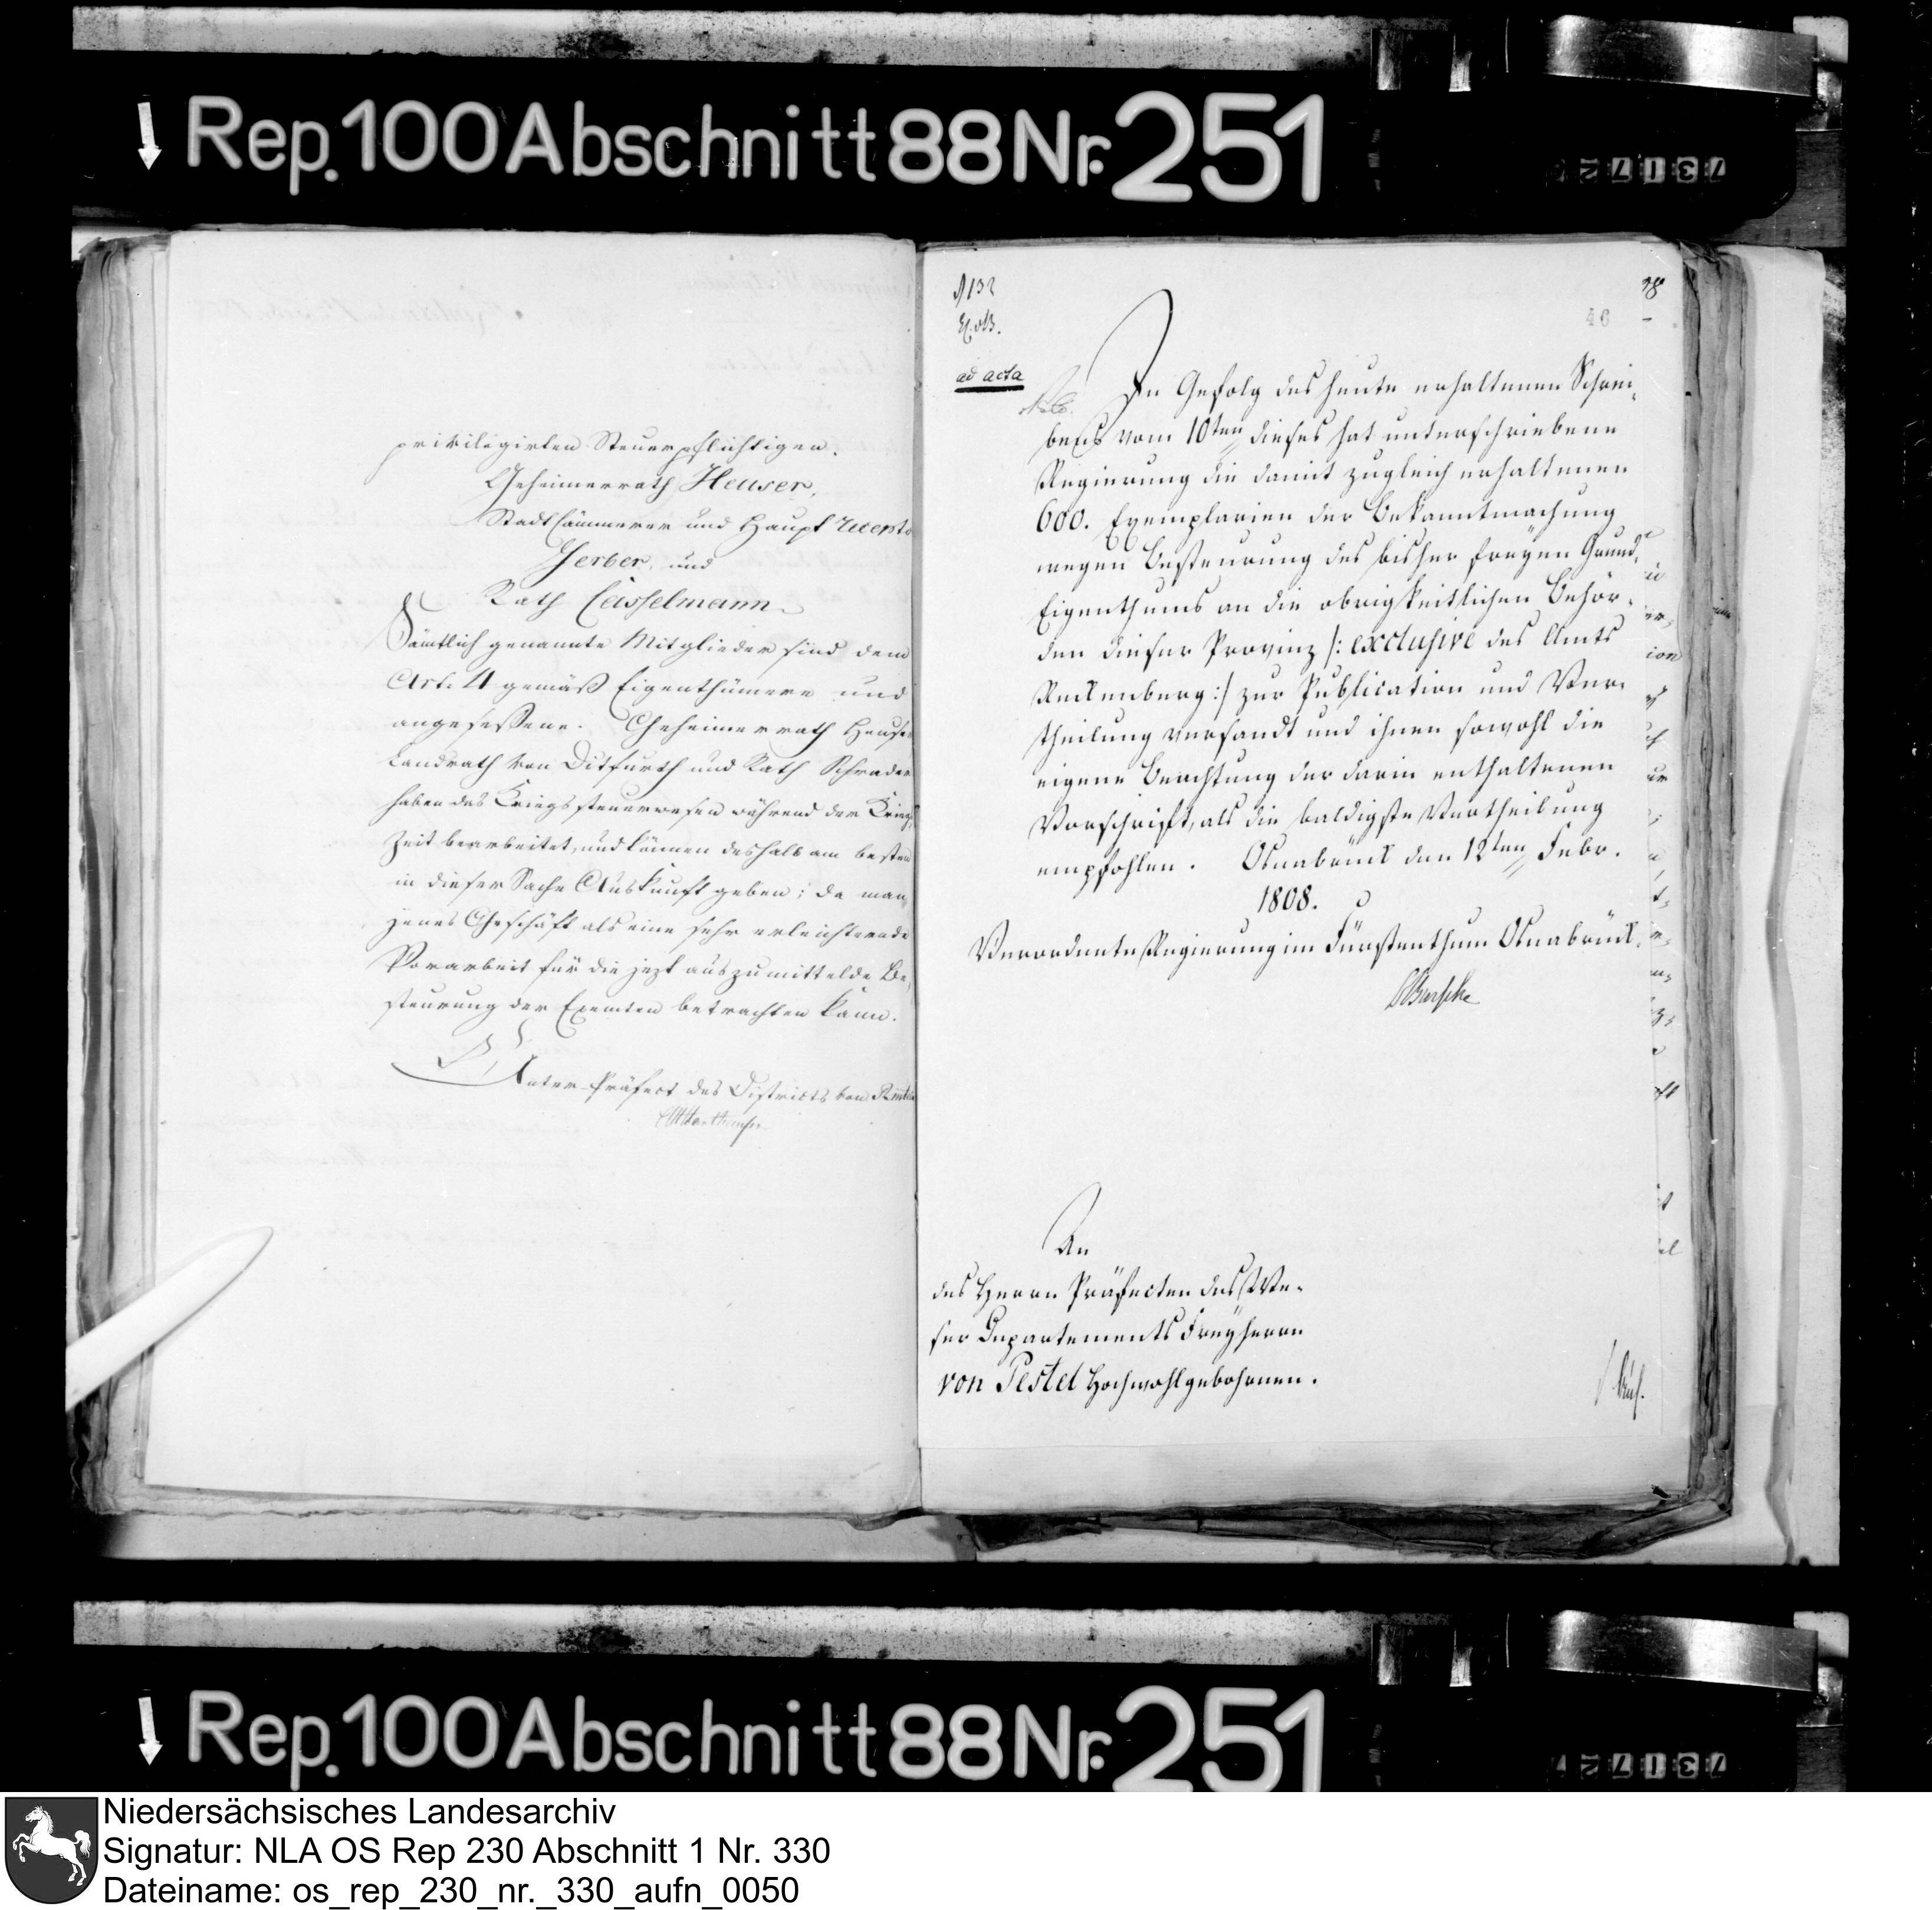 Rep. 100 Abschnitt 88 Nr. 251
73172
privilegirten Steuerpflichtigen.
Geheimerrath Heuser,
Stadtkämmerer und Haupt
Gerber, und
Rath Casselmann
Sämtlich genannte Mitglieder sind dem
Art. 4 gemäß Eigenthümere und
angeseßene. Geheimerrath Heuser
Landrath von Ditfurth und Rath Schrader
haben das Kriegssteuerwesen während der Kriegs
Zeit bearbeitet, und können deshalb am besten
in dieser Sache Auskunft geben; da man
jenes Geschäft als eine sehr erleichternde
Vorarbeit für die jezt auszumittelde Be-
steurung der Exemten betrachten kann.
Unter-Präfect des Districts von Rinteln
132
ad acta
46
In Gefolg des heute erhaltenen Schrei-
bens vom 10ten dieses hat unterschriebene
Regierung die damit zugleich erhaltenen
600. Exemplarien der Bekanntmachung
wegen Besteurung des bisher freyen Grund-
Eigenthums an die obrigkeitlichen Behör-
den dieser Provinz /: exclusive des Amts
Reckenberg :/ zur Publication und Ver-
theilung versandt und ihnen sowohl die
eigene Beachtung der darin enthaltenen
Vorschrift, als die baldigste Vertheilung
empfohlen. Osnabrück den 12ten Febr.
1808.
Verordnete Regierung im Fürstenthum Osnabrück.
An
des Herrn Präfecten des We-
ser Departements Freyherrn
von Pestel Hochwohlgebohrnen.
Rep. 100 Abschnitt 88 Nr. 251
73172
Niedersächsisches Landesarchiv
Signatur: NLA OS Rep 230 Abschnitt 1 Nr. 330
Dateiname: os_rep_230_nr._330_aufn_0050